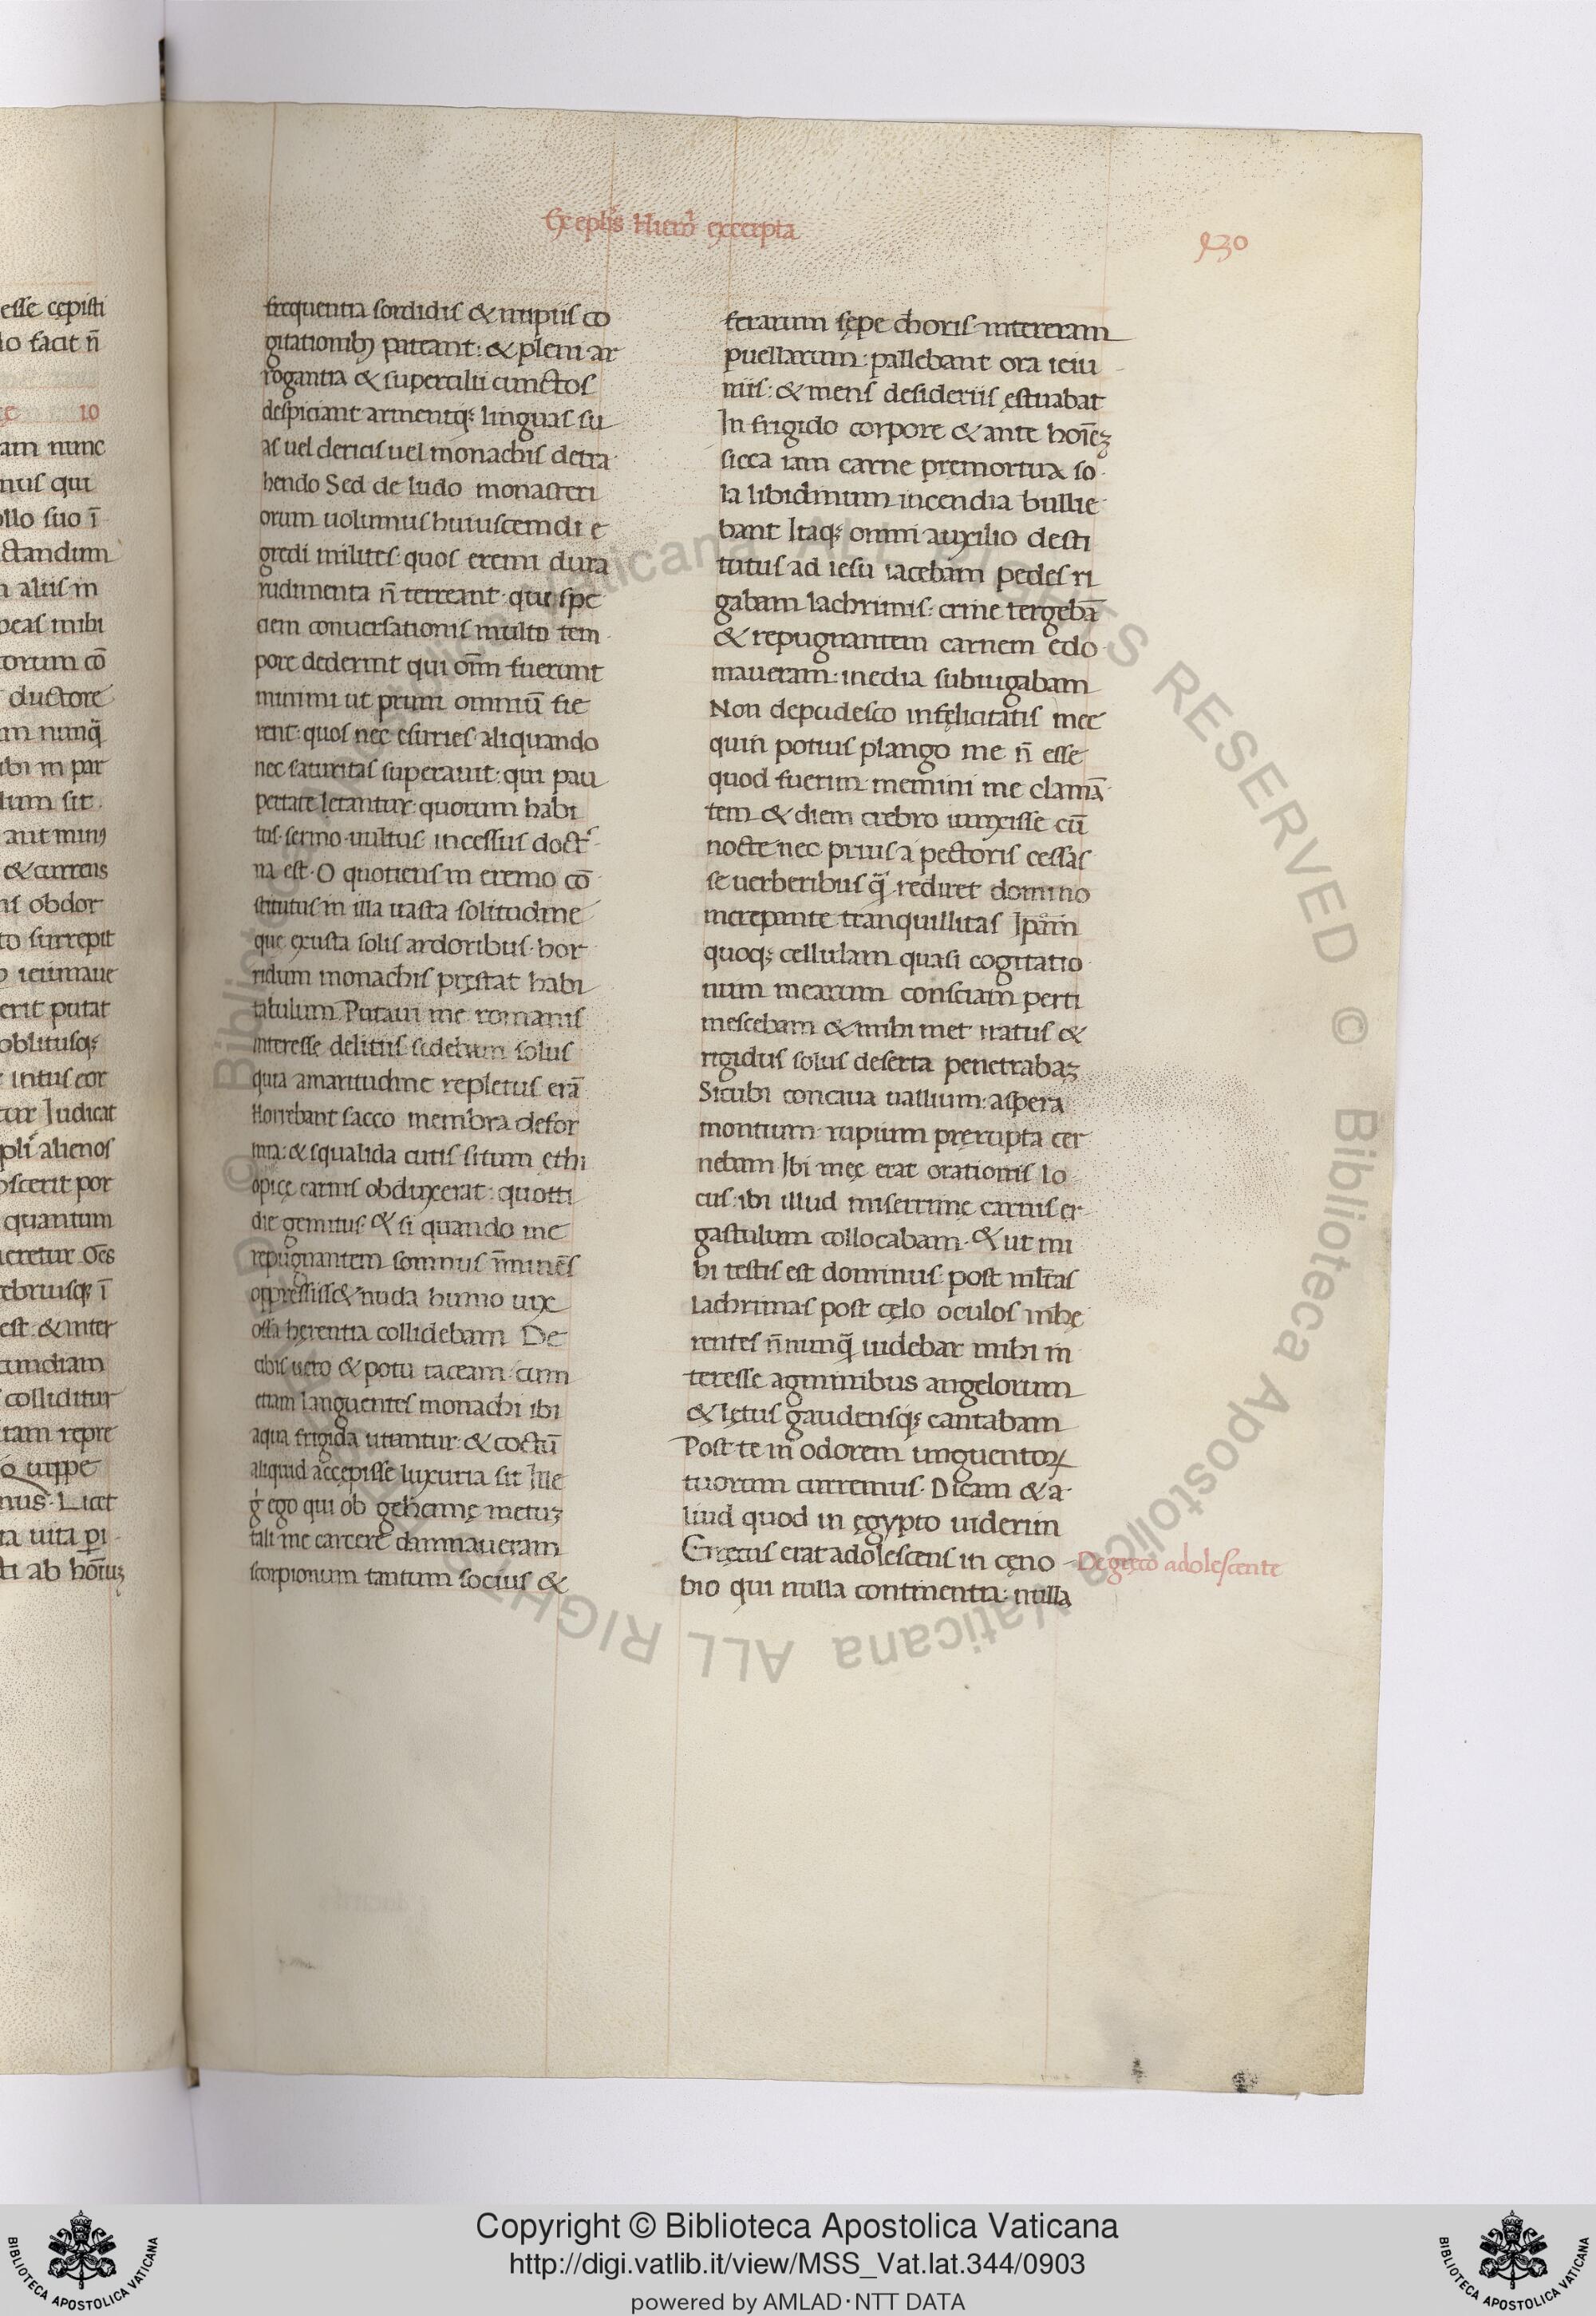 Ex eplis Hiero excerpta
430
frequentia sordidis & turpiis co
gitationibꝰ pateant: & pleni ar
rogantia & supercilii cunctos
despiciant armentqꝫ linguas su
as uel clericis uel monachis detra
hendo Sed de ludo monasteri
orum uolumus huiuscemdi e
gredi milites quos eremi dura
rudimenta n̄ terreant qui spe
ciem conuersationis multo tem
pore dederint qui om̄n fuerunt
minimi ut primi omniū fie
rent: quos nec esuries aliquando
nec saturitas superauit: qui pau
pertate letantur: quorum habi
tus sermo uultus incessus doctⁱ
na est. O quotiens in eremo cō
stitutus in illa uasta solitudine
que exusta solis ardoribus hor
ridum monachis pręstat habi
tabulum Putaui me romanis
interesse delitiis sedebam solus
quia amaritudine repletus erā
Horrebant sacco membra defor
mia: & squalida cutis situm ethi
opicę carnis obduxerat: quotti
die gemitus & si quando me
repugnantem somnus īminēs
oppressiss& nuda humo uix
ossa herentia collidebam De
cibis uero & potu taceam cum
etiam languentes monachi ibi
aqua frigida utantur: & coctū
aliquid accepisse luxuria sit Ille
g̊ ego qui ob gehennę metuꝫ
tali me carcere damnaueram
scorpionum tantum socius &
ferarum sępe choris intereram
puellarum: pallebant ora ieiu
niis: & mens desideriis ęstuabat
In frigido corpore & ante hoīeꝫ
sicca iam carne premortua so
la libidinum incendia bullie
bant Itaqꝫ omni auxilio desti
tutus ad iesu iacebam pedes ri
gabam lachrimis: crine tergebā
& repugnantem carnem edo
maueram: inedia subiugabam
Non depudesco infęlicitatis meę
quin potius plango me n̄ esse
quod fuerim memini me clamā
tem & diem crebro iunxisse cū
nocte nec prius a pectoris cessas
se uerberibus q̄ rediret domino
increpante tranquillitas Ipam
quoqꝫ cellulam quasi cogitatio
num mearum consciam perti
mescebam & mihi met iratus &
rigidus solus deserta penetrabaꝫ
Sicubi concaua uallium: aspera
montium rupium pręrupta cer
nebam Ibi meę erat orationis lo
cus: ibi illud miserrimę carnis er
gastulum collocabam. & ut mi
hi testis est dominus post mltas
lachrimas post cęlo oculos inhę
rentes n̄ nunq̄ uidebar mihi in
teresse agminibus angelorum
& lętus gaudensqꝫ cantabam
Post te in odorem unguentoꝝ
tuorum curremus. Dicam & a
liud quod in ęgypto uiderim
Gręcus erat adolescens in cęno
bio qui nulla continentia: nulla
De gręco adolescente
Copyright © Biblioteca Apostolica Vaticana
http://digi.vatlib.it/view/MSS_Vat.lat.344/0903
powered by AMLAD·NTT DATA